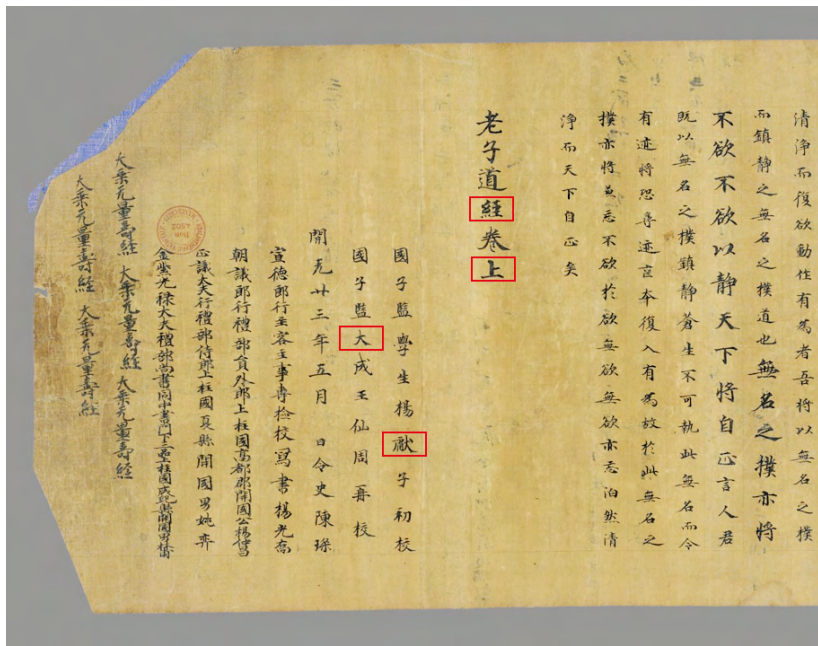 清淨而復欲動作有為者吾將以無名之樸
而鎮静之無名之樸道也無名之樸亦將
不欲不欲以静天下將自正言人君
既以無名之樸鎮静蒼生不可執此無名而令
有迹將恐尋迹喪本復入有為故於此無名之
樸亦將兼忘不欲於欲無欲無欲亦忘泊然清
淨而天下自正矣
老子道經卷上
國子監學生楊獻子初校
國子監大成王仙周再校
開元廿三年五月 日令史陳琛
宣德郎行主客主事專檢校寫書楊光喬
朝議郎行禮部員外郎上柱國高都郡開國公楊仲昌
正議大夫行禮部侍郎上柱國夏縣開國男姚弈
金紫光祿大夫禮部尚書同中書門下三品上柱國成紀縣開國男林甫
大乘无量壽經 大乘无量壽經 大乘无量壽經
大乘无量壽經 大乘无量壽經